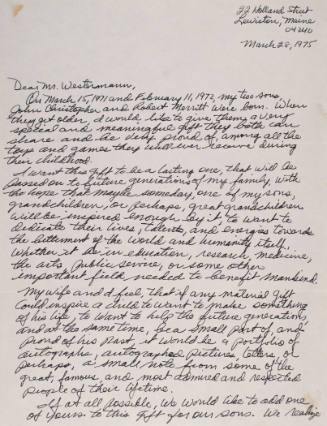 22 Holland Street
Lewiston, Maine
04240
March 28, 1975
Dear Mr. Westermann,
On March 15, 1971 and February 11, 1972, my two sons,
John Christopher and Robert Merritt were born. When
they get older, I would like to give them a very
special and meaningful gift they both can
share and be deeply proud of, among all the
toys and games they will ever receive during
their childhood.
I want this gift to be a lasting one, that will be
passed on to future generations of my family. With
the hope that maybe someday, one of my sons,
grandchildren, or perhaps, great grandchildren
will be inspired enough by it, to want to
dedicate their lives, talents, and energies towards
the betterment of the world and humanity itself.
Whether it be in education, research, medicine,
the arts, public service, or some other
important field needed to benefit mankind.
My wife and I feel, that if any material gift
could inspire a child to want to make something
of his life, to want to help the future generation,
and at the same time, be a small part of, and
proud of his past, it would be a portfolio of
autographs, autographed pictures, letters, or
perhaps, a small note from some of the
great, famous, and most admired and respected
people of their lifetime.
If at all possible, we would like to add one
of yours to this gift for our sons. We realize